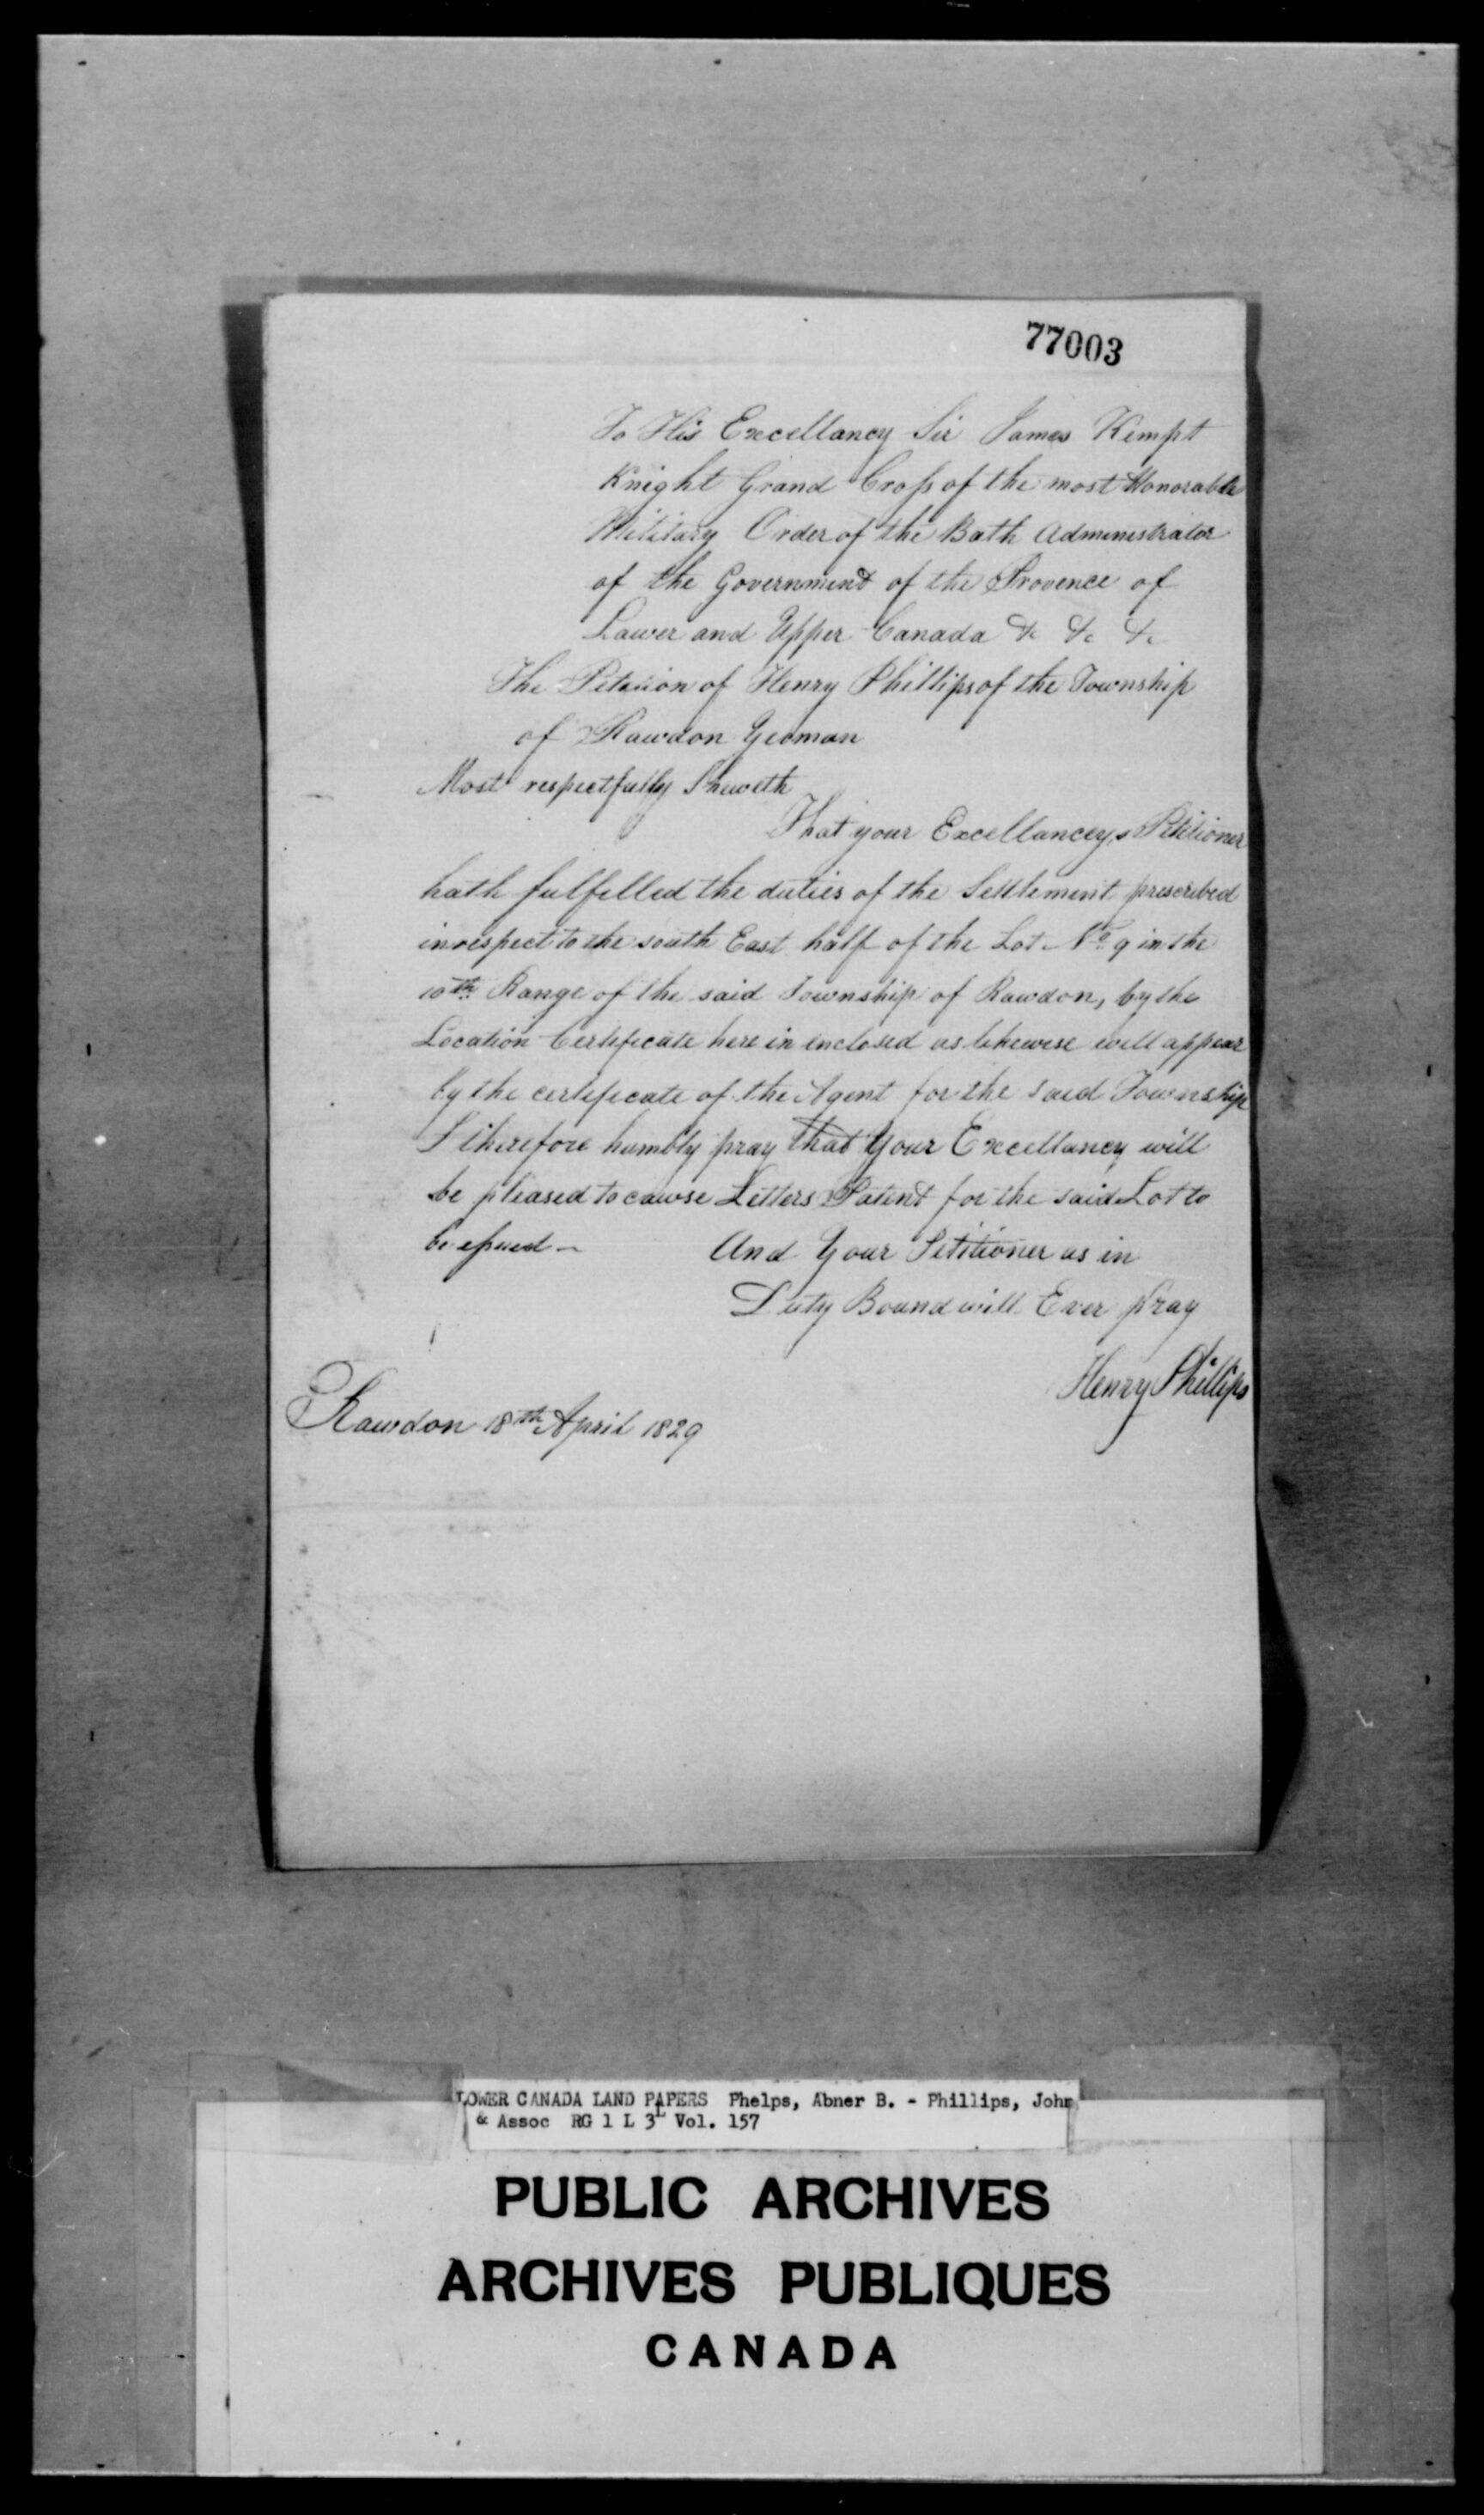 77003
To His Excellancy Sir James Kempt
Knight Grand Cross of the most Honorable
Military Order of the Bath Administrator
of the Government of the Provence of
Lawer and Upper Canada &c &c &c
The Petition of Henry Phillips of the Township
of Rawdon Yeoman
Most respectfully Sheweth
That your Excellancey,s Petitioner
hath fulfilled the duties of the Settlement prescribed
in respect to the south East half of the Lot No 9 in the
10th Range of the said Township of Rawdon, by the
Location Certificate here in enclosed as likewise will appear
by the certificate of the Agent for the said Township
I therefore humbly pray that Your Excellancy will
be pleased to cawse Letters Patent for the said Lot to
be issued - And Your Petitioner as in
Duty Bound will Ever pray
Henry Phillips
Rawdon 18th April 1829
LOWER CANADA LAND PAPERS Phelps, Abner B. - Phillips, John
& Assoc RG 1 L 3L Vol. 157
PUBLIC ARCHIVES
ARCHIVES PUBLIQUES
CANADA